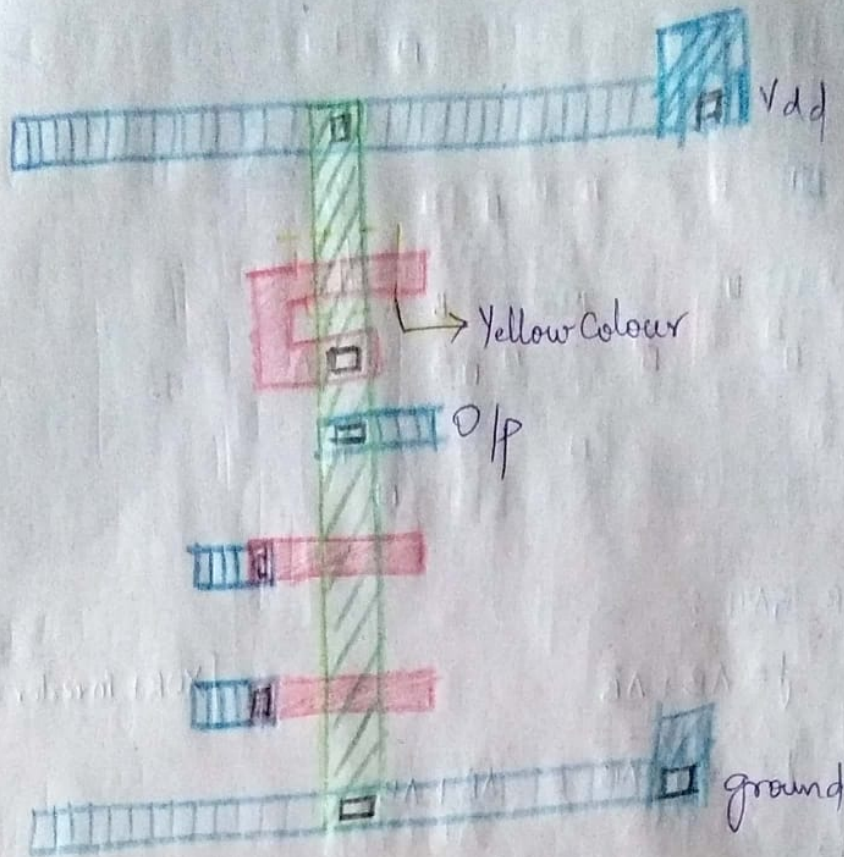 Vdd
Yellow Colour
O/p
ground